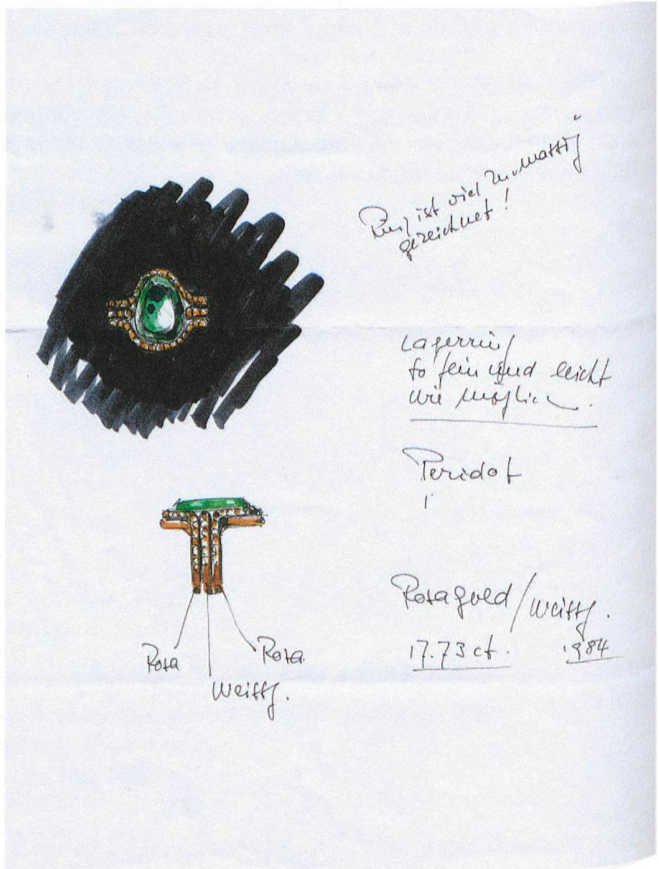 Ring ist viel zu massig
gezeichnet!
Lagerring
so fein und leicht
wie möglich.
Peridot
Rosagold/Weissg.
17.73 ct. 1984
Rosa
Rosa
Weissg.